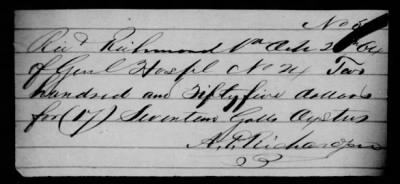 No
Rec'd Richmond Va Oct 2 64
of Genl Hospl No 24 Two
hundred and Fifty five dollars
for (17) Seventeen Galls Oysters
A. P. Richardson